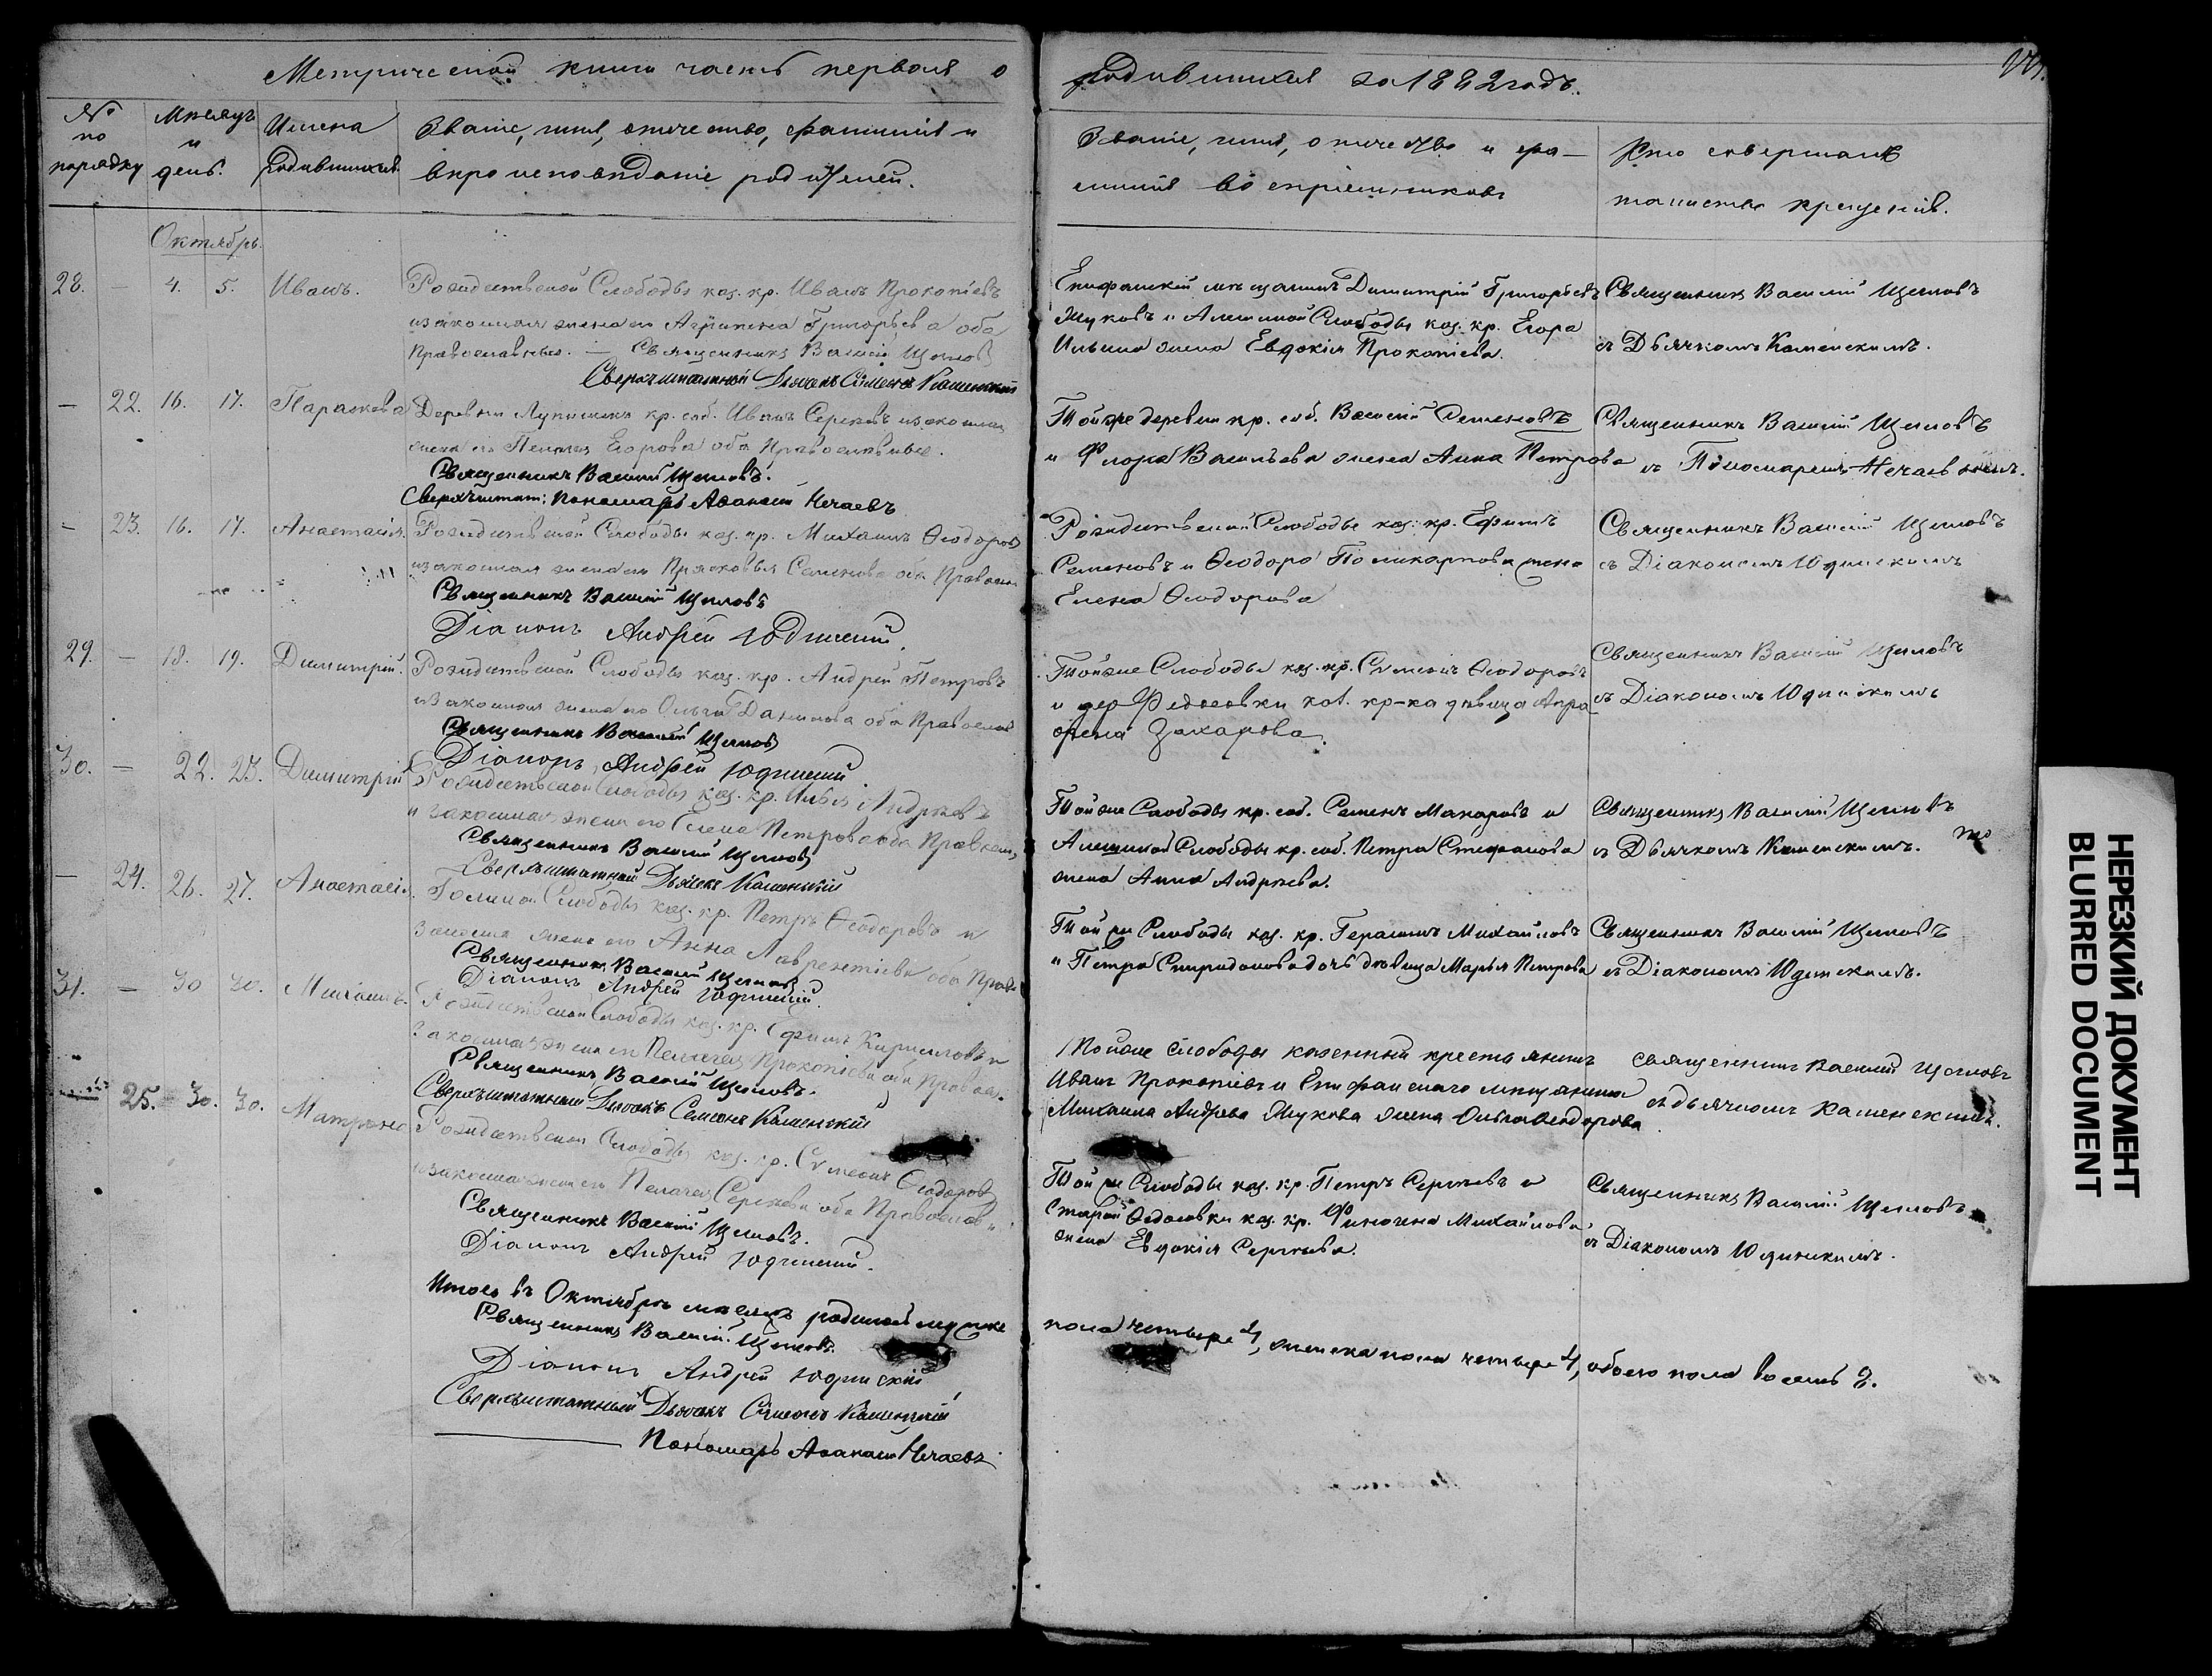 Метрической книги часть первая о
родившихся за 1882 годъ.
№ по порядку
Мѣсяцъ и день.
Имена родившихся.
Званіе, имя, отчество, фамилія и
вѣроисповѣданіе родителей.
Званіе, имя, отчество и фа-
милія воспріемниковъ
Кто совершалъ
таинство крещенія.
Октябрь.
28. — 4. 5. Иванъ.
Рождественой Слободы каз. кр. Иванъ Прокопіевъ
и законная жена его Агрипена Григорьева оба
Православные. — Священникъ Василій Щегловъ
Сверхштатный Дьячекъ Симеонъ Каменскій
Епифанскій мѣщанинъ Димитрій Григорьевъ
Жуковъ и Алешиной Слободы каз. кр. Егора
Ильина жена Евдокія Прокопіева.
Священникъ Василій Щегловъ
съ Дьячкомъ Каменскимъ.
— 22. 16. 17. Параскева
Деревни кр. соб. Иванъ Сергѣевъ и законная
жена его Пелагея Егорова оба Православные.
Священникъ Василій Щегловъ.
Сверхштат: Пономарь Афанасій Нечаевъ
Той же деревни кр. соб. Василій Семеновъ
и Флора Васильева жена Анна Петрова
Священникъ Василій Щегловъ
съ Пономаремъ Нечаевымъ.
— 23. 16. 17. Анастасія.
Рождественой Слободы каз. кр. Михаилъ Ѳеодоровъ
и законная жена его Прасковья Семенова оба Правосл.
Священникъ Василій Щегловъ
Діаконъ Андрей Юдинскій.
Рождественой Слободы каз. кр. Ефимъ
Семеновъ и Ѳеодора Поликарпова жена
Елена Ѳеодорова
Священникъ Василій Щегловъ
съ Діакономъ Юдинскимъ
29. — 18. 19. Димитрій.
Рождественой Слободы каз. кр. Андрей Петровъ
и законная жена его Ольга Данилова оба Правосла
Священникъ Василій Щегловъ
Діаконъ Андрей Юдинскій
Той же Слободы каз. кр. Симеонъ Ѳеодоровъ
и дер. Федосовки каз. кр-ка дѣвица Агра
фена Захарова.
Священникъ Василій Щегловъ
съ Діакономъ Юдинскимъ
30. — 22. 23. Димитрій
Рождественой Слободы каз. кр. Илья Андреевъ
и законная жена его Елена Петрова оба Правосл.
Священникъ Василій Щегловъ
Сверхштатный Дьячекъ Каменскій
Той же Слободы кр. соб. Семенъ Макаровъ и
Алешиной Слободы кр. соб. Петра Стефанова
жена Анна Андреева.
Священникъ Василій Щегловъ
съ Дьячкомъ Каменскимъ.
— 24. 26. 27. Анастасія.
Слободы каз. кр. Петръ Ѳеодоровъ и
законная жена его Анна Лаврентіева оба Прав.
Священникъ Василій Щегловъ
Діаконъ Андрей Юдинскій.
Той же Слободы каз. кр. Герасимъ Михайловъ
и Петра Спиридонова дочь дѣвица Марья Петрова
Священникъ Василій Щегловъ
съ Діакономъ Юдинскимъ.
31. — 30 30. Михаилъ.
Рождественой Слободы каз. кр. Ефимъ Кирилловъ и
законная жена его Пелагея Прокопіева оба Правосл.
Священникъ Василій Щегловъ.
Сверхштатный Дьячекъ Симеонъ Каменскій
Той же Слободы казенный крестьянинъ
Иванъ Прокопіевъ и Епифанскаго мѣщанина
Михаила Андреева Жукова жена Ольга Ѳеодорова
Священникъ Василій Щегловъ
съ дьячкомъ Каменскимъ.
25. 30. 30. Матрона
Рождественой Слободы каз. кр. Симеонъ Ѳеодоровъ
и законная жена его Пелагея Сергѣева оба Православн.
Священникъ Василій Щегловъ.
Діаконъ Андрей Юдинскій.
Той же Слободы каз. кр. Петръ Сергѣевъ и
Старой Федосовки каз. кр. Финогена Михайлова
жена Евдокія Сергѣева.
Священникъ Василій Щегловъ
съ Діакономъ Юдинскимъ.
Итого въ Октябрѣ мѣсяцѣ родилось мужеска
пола четыре 4, женска пола четыре 4, обоего пола восемь 8.
Священникъ Василій Щегловъ.
Діаконъ Андрей Юдинскій
Сверхштатный Дьячекъ Симеонъ Каменскій
— Пономарь Афанасій Нечаевъ
НЕРЕЗКИЙ ДОКУМЕНТ
BLURRED DOCUMENT